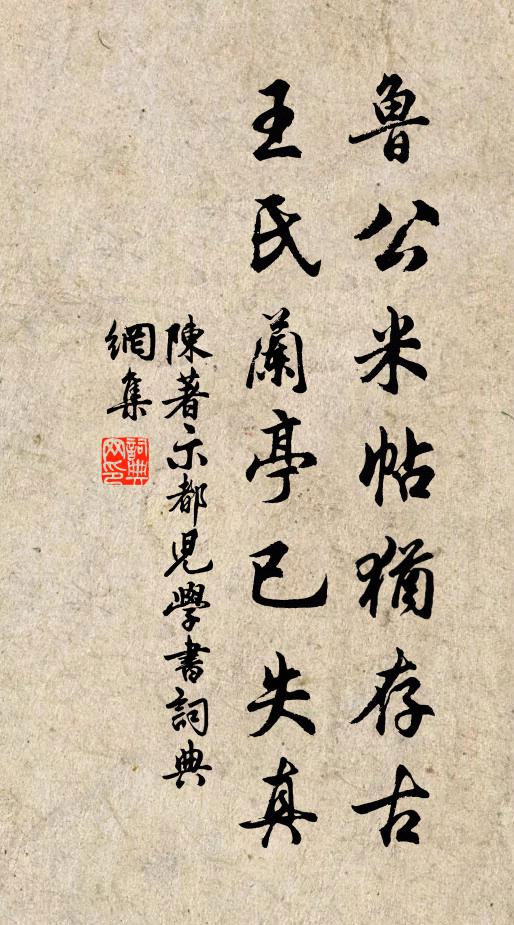 魯公米帖猶存古
王氏蘭亭已失真
陳著示都兒學書詞典
網集
詞典
网印